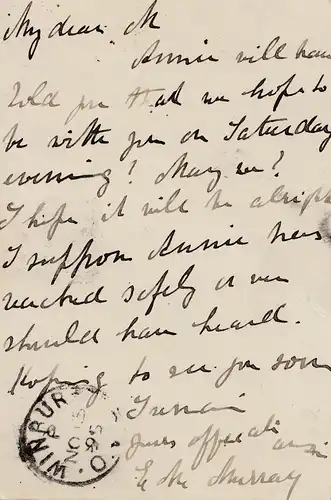 My dear M
Annie will have
told you that we hope to
be with you on Saturday
evening! May we?
I hope it will be alright
I suppose Annie has
reached safely or we
should have heard.
Hoping to see you soon
I remain
yours affectionately
Murray
WINBUR